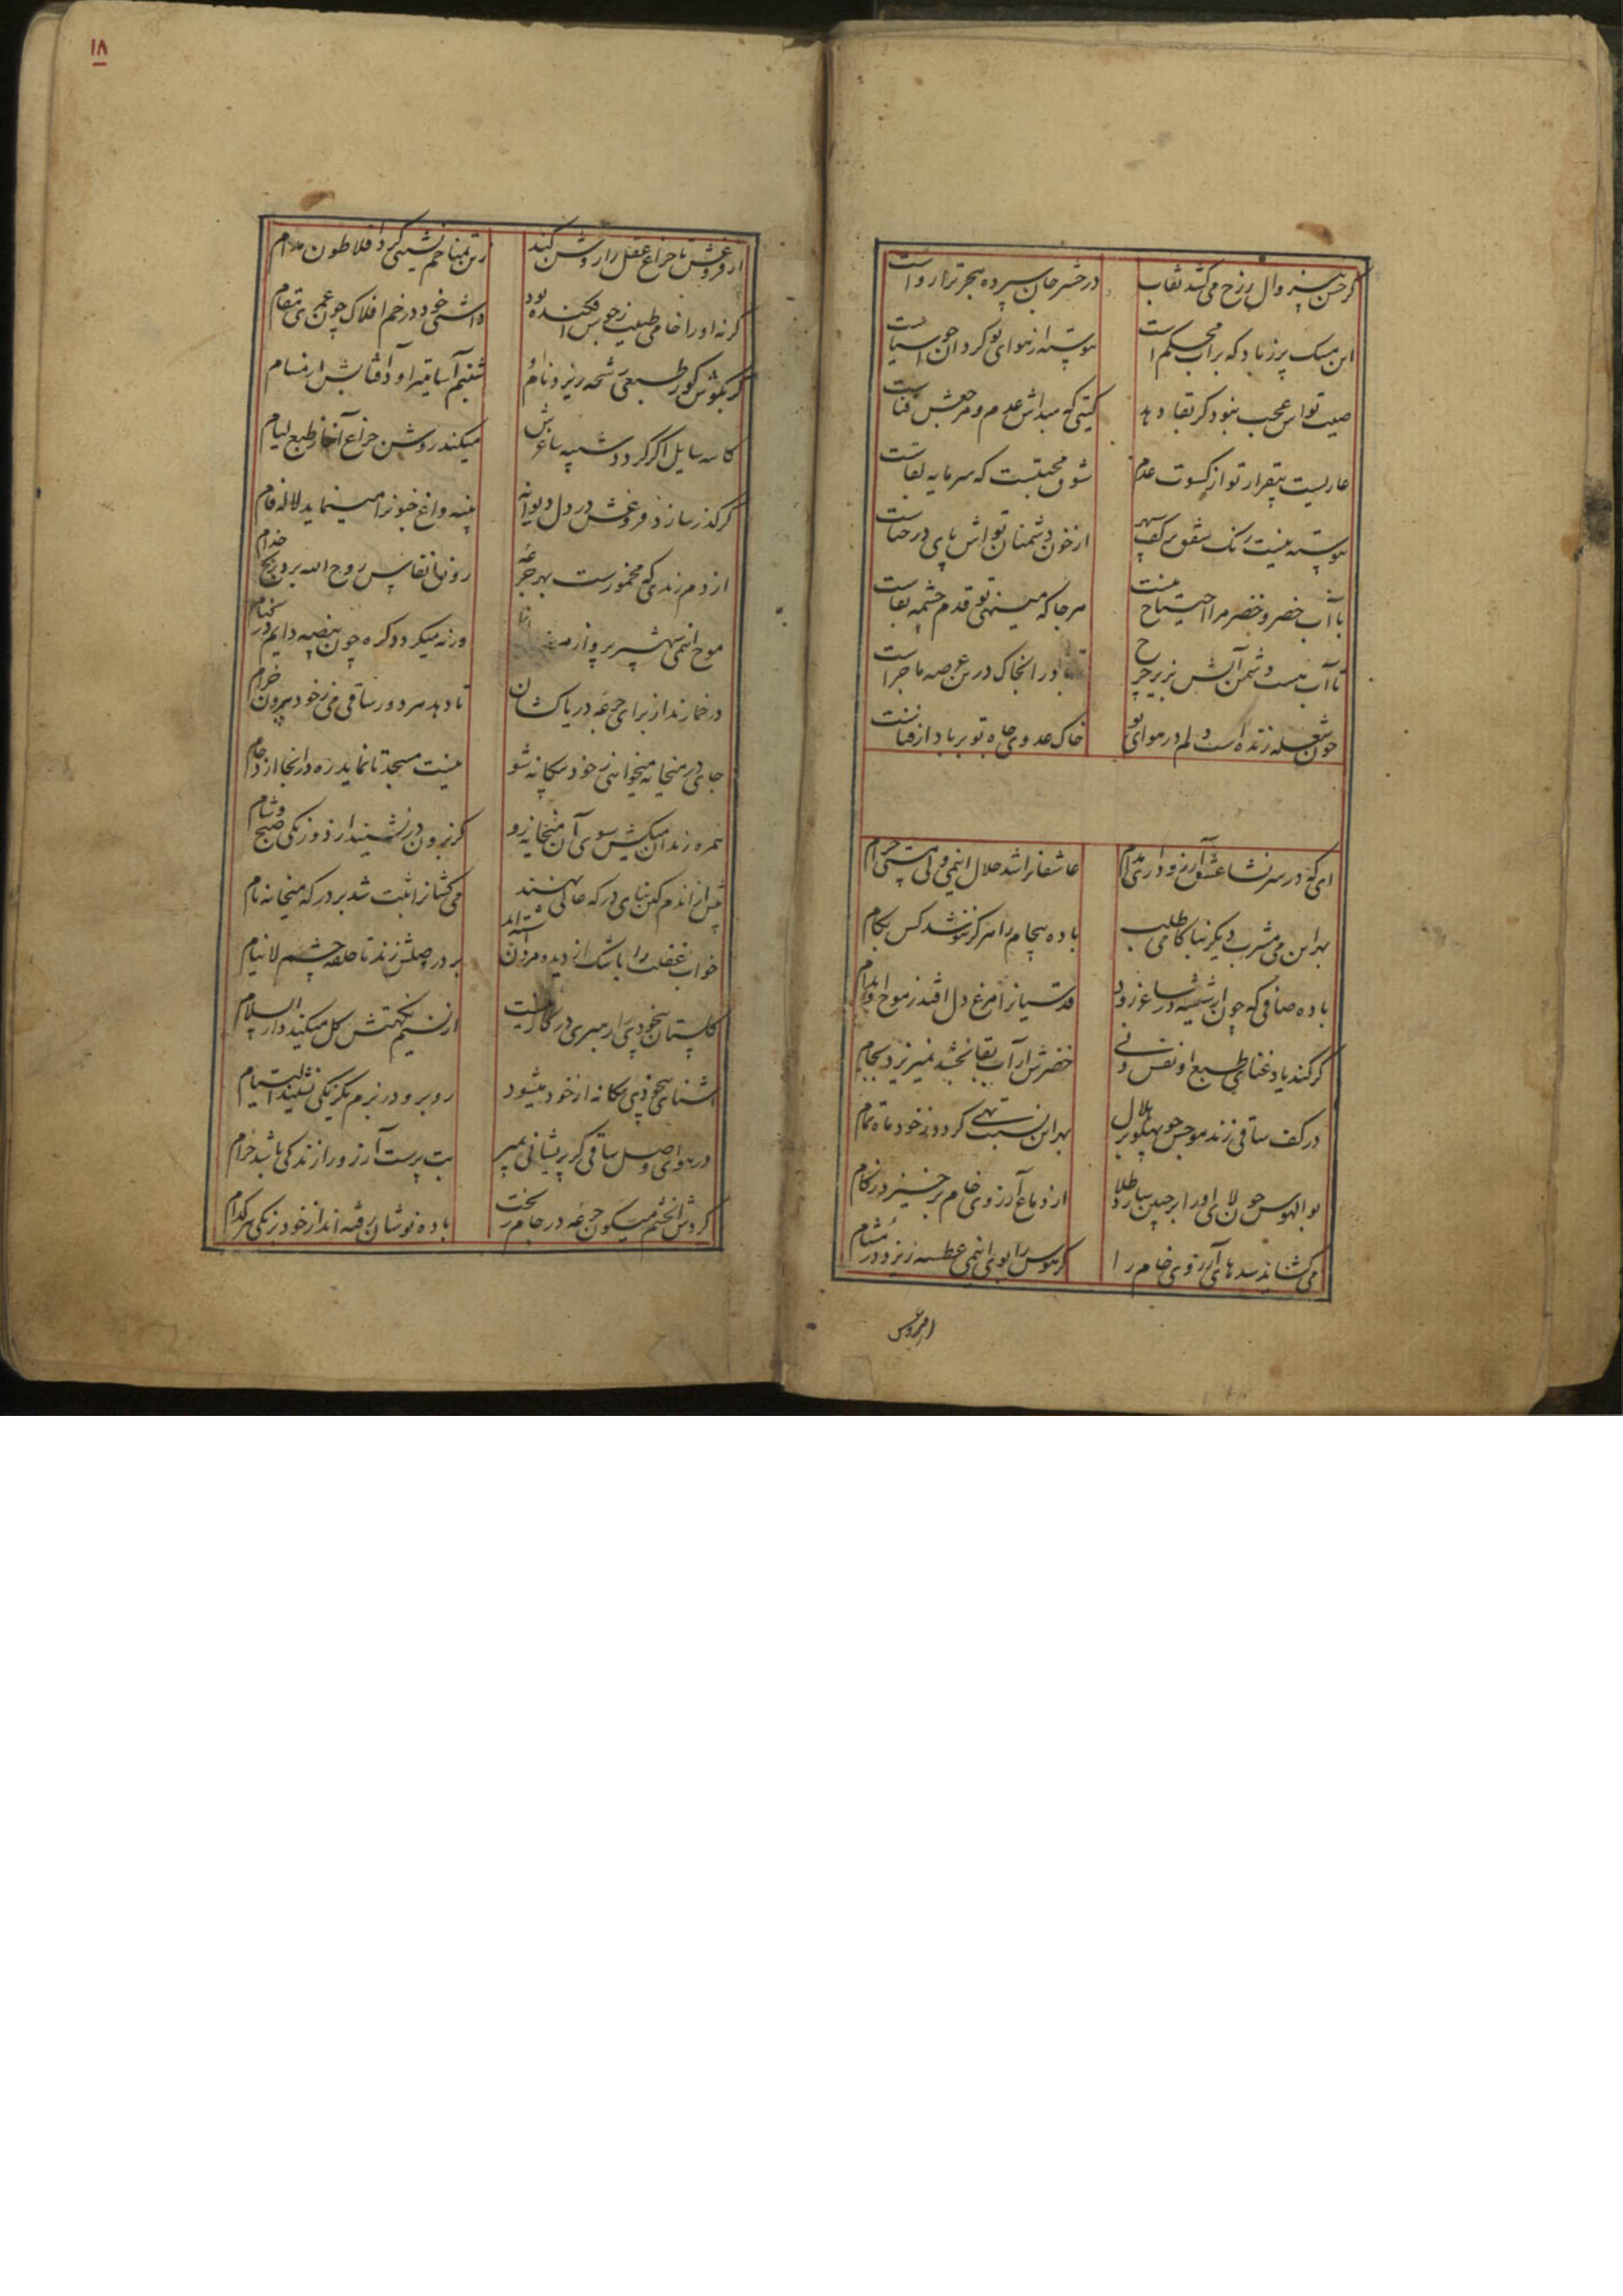 گر حسن بیزوال رزخ می کشد نقاب در حشر جان سپرده بهجر ترا رواست
این مشک پر زباد که بر آب محکم است پیوسته از هوای تو گردان چو آسیاست
صیت تواش عجب نبود گر بقا دهد گیتی که مبداش عدم و مرجعش فناست
عاریست بیقرار تو از کسوت عدم شوق محبتست که سرمایه بقاست
پیوسته نیست رنگ شفق بر کف سپهر از خون دشمنان تواش پای در حناست
با آب خضر و خضر مرا احتیاج نیست هر جا که مینهی تو قدم چشمه بقاست
تا آب هست دشمن آتش بزیر چرخ باد را بخاک درین عرصه ماجراست
چون شعله زنده است دلم در هوای تو خاک عدوی جاه تو بر باد از فناست
ای که در سر نشأ عشق آرزو داری مدام عاشقانرا شد حلال اینمی ولی مستی حرام
بهر این می مشرب دیگر بباید کامی طلب باده بیجام را هرگز ننوشد کس بکام
باده صافی که چون از شیشه در ساغر رود قدسیانرا مرغ دل افتد ز موج او بدام
گر کند یاد غنای طبع او نفس دنی خضرش ار آب بقا بخشد نمیریزد بجام
در کف ساقی زند موجش چو پهلو بر هلال بهر این نسبت تهی گردد ز خود ماه تمام
بوالهوس چون لای او را برجبین بیارد طلا از دماغ آرزوی خام برخیزد زکام
می گشاید سدهای آرزوی خام را گر هوس را بوی اینمی عطسه ریزد در مشام
از فروغش
۱۸
از فروغش تا چراغ عقل را روشن کند زین تمنا خم نشینی کرد افلاطون مدام
گرنه او را خامی طبیعت ز جوش افکنده بود داشتی خود در خم افلاک چون عیسی مقام
گر بگوش کور طبعی رشحه ریزد نام او شبنم آسا تیراود آفتابش از مسام
کاسه سایل اگر گردد شبیه ساغرش میکند روشن چراغ آنجا ز طبع لیام
گر گذر سازد فروغش در دل دیوانه پنبه داغ جنونرا مینماید لاله فام
از دم رندی که مخمورست بهر جرعه روزها انفاس روح الله برد رنج خدام
موج اینمی شهپر پرواز ورنه میگردد گره چون بیضه دایم در کنام
در خمارند از برای جرعه دریاکشان تا دهد هر دور ساقی می ز خود بیرون خرام
جای در میخانه میخواهی ز خود بیگانه شو نیست مسجد تا نماید ره در آنجا ازدحام
همره رندان میکش سوی آن میخانه رو کز برون در نشیند از دو رنگی صبح و شام
پیش از آندم کین بنای درگه عالی نهند می کشانرا ثبت شد بر درگه میخانه نام
خواب غفلت را باشک از دیده مردان شسته اند بر در وصلش زند تا حلقه چشم لاینام
گلستان بیخودی را رهبری در کار نیست از نسیم نکهتش گل میکند دارالسلام
آشنای بیخودی بیگانه از خود میشود روبرو در بزم یکرنگی نشیند التیام
در هوای وصل ساقی گر پریشانی بمیر بت پرست آرزو را زندگی باشد حرام
گردش آنچشم میگون جرعه در جام ریخت باده نوشان رفته اند از خود برنگی هر کدام